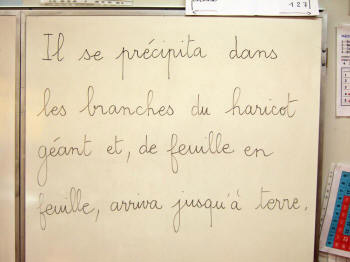 127
Il se précipita dans
les branches du haricot
géant et, de feuille en
feuille, arriva jusqu'à terre.